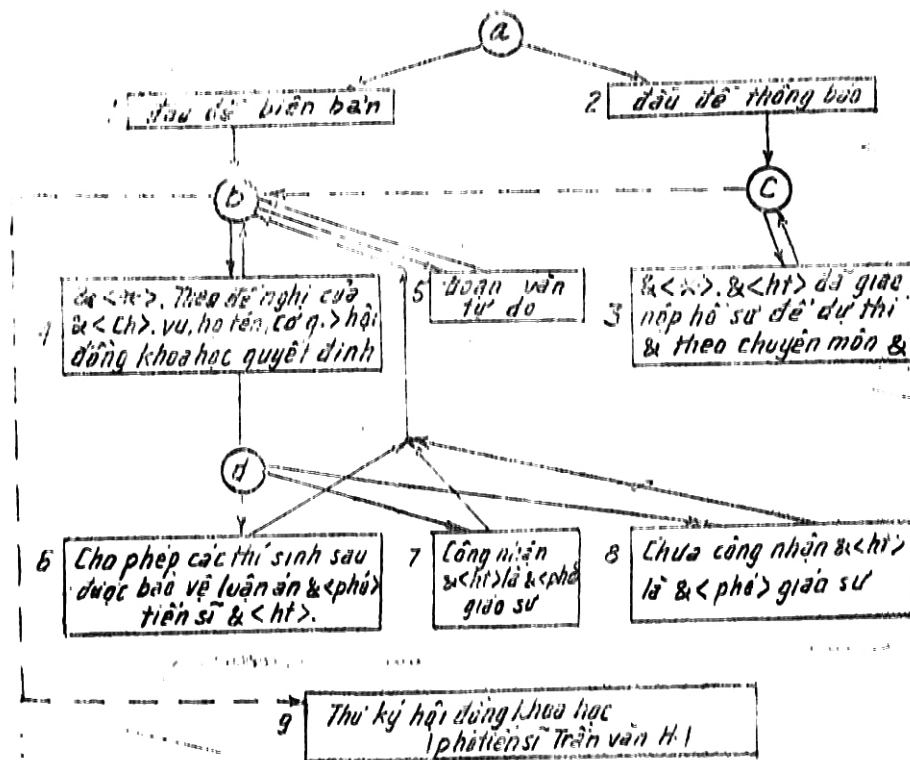 a
1 đầu đề biên bản
2 đầu đề thông báo
b
c
4 &<*>. Theo đề nghị của
&<ch>. vụ, họ tên, cơ q.> hội
đồng khoa học quyết định
5 Đoạn văn
tự do
3 &<*>. &<ht> đã giao
nộp hồ sơ để dự thi
& theo chuyên môn &
d
6 Cho phép các thí sinh sau
được bảo vệ luận án &<phó>
tiến sĩ &<ht>.
7 Công nhận
&<ht> là &<phó>
giáo sư
8 Chưa công nhận &<ht>
là &<phó> giáo sư
9 Thư ký hội đồng khoa học
/phó tiến sĩ Trần văn H./